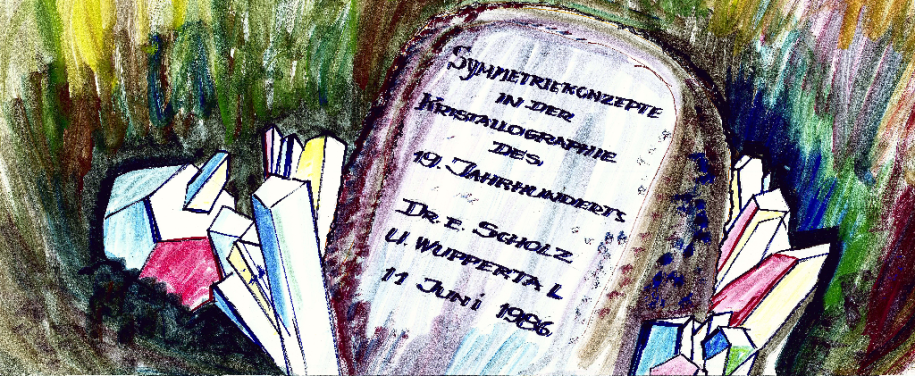 SYMMETRIEKONZEPTE
IN DER
KRISTALLOGRAPHIE
DES
19. JAHRHUNDERTS
DR. E. SCHOLZ
U. WUPPERTAL
11 JUNI 1986